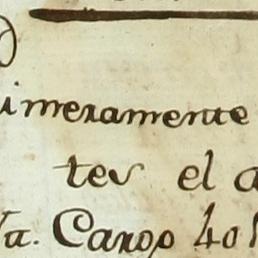 imeramente
tes el a
a. Canos 40